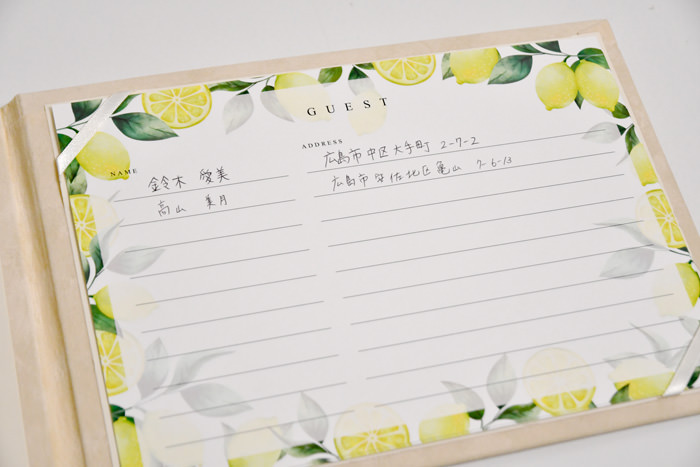 GUEST
NAME
ADDRESS
鈴木 愛美
広島市中区大手町 2-7-2
高山 美月
広島市安佐北区亀山 7-6-13